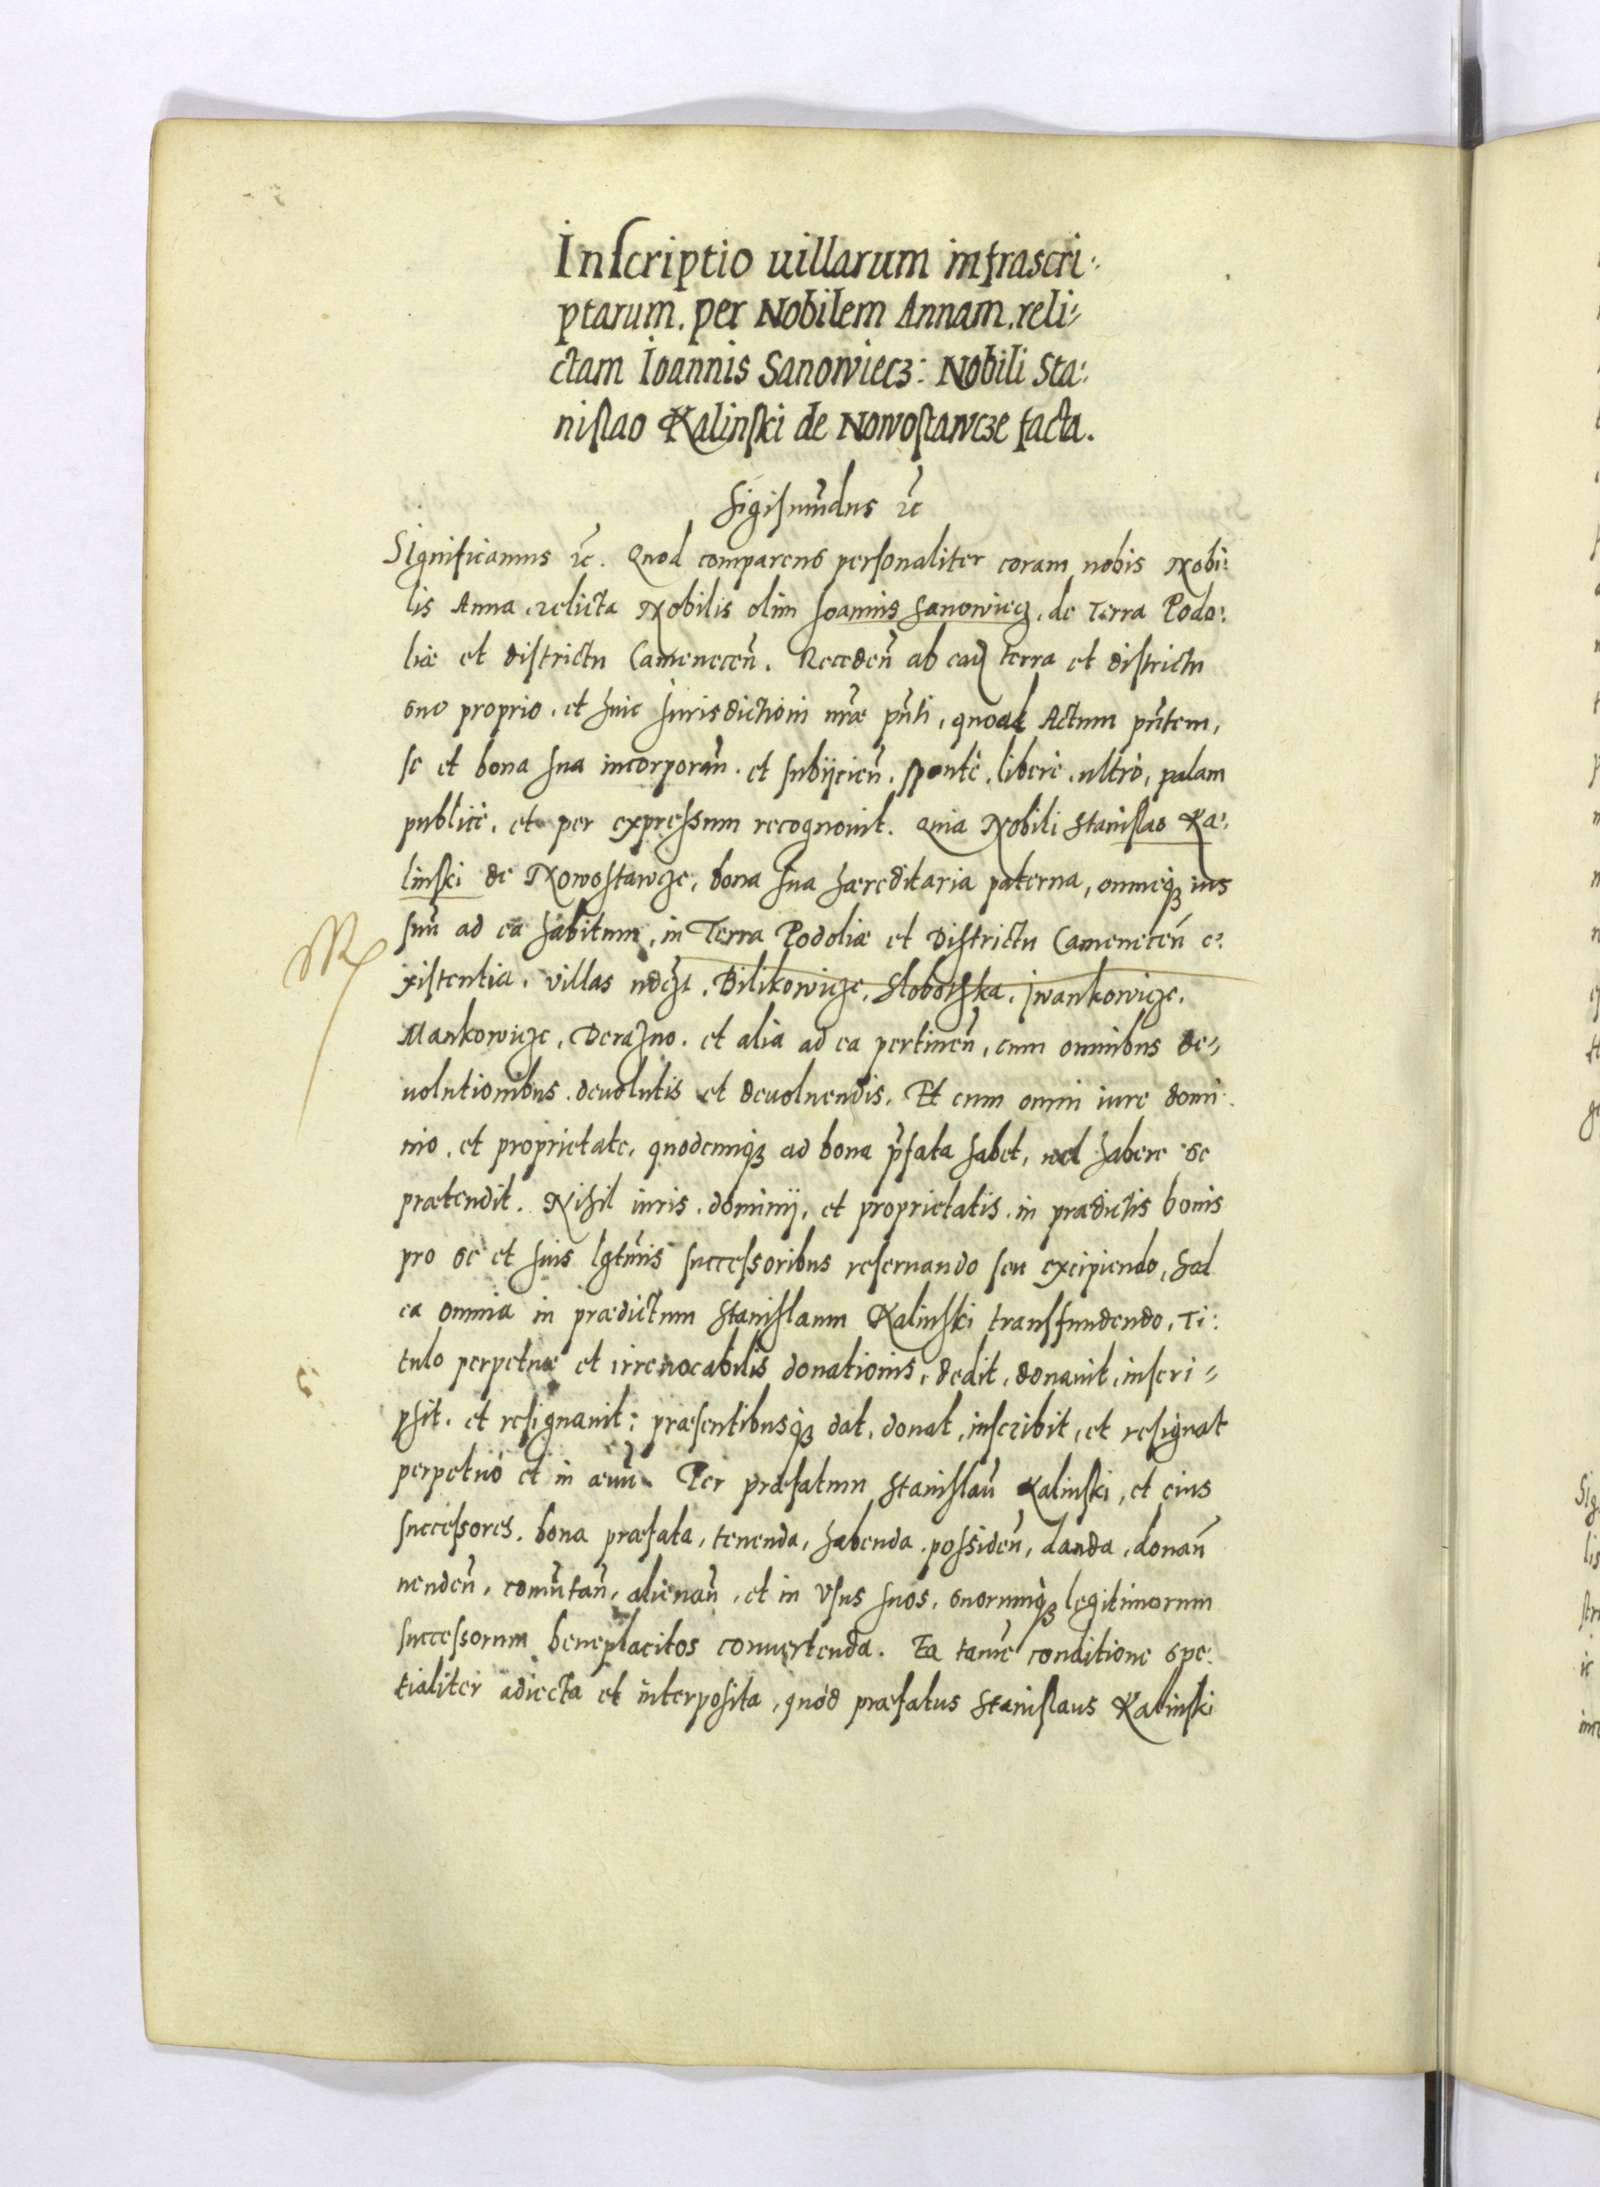 Inscriptio uillarum infrascri:
ptarum. per Nobilem Annam. reli:
ctam Ioannis Sanowiecz: Nobili Sta:
nislao Kalinski de Nowostawcze facta.
Sigismũdus ꝛc̃
Significamus ꝛc̃. Quod comparens personaliter coram nobis Nobi:
lis Anna relicta Nobilis olim Joannis Sanowiecz, de Terra Podo:
liæ et districtu Camenecen̄. Receden̄ ab ead terra et districtu
suo proprio, et huic Jurisdictioni nr̃æ pñti, quoad Actum pñtem,
se et bona sua incorporan̄. et subijcien̄. spontè, liberè, ultrò, palam
publicè, et per expressum recognouit. Quia Nobili Stanislao Ka:
linski de Nowostawcze, bona sua hæreditaria paterna, omneqꝫ ius
suũ ad ea habitum, in Terra Podoliæ et Districtu Camenecen̄ e:
xistentia. villas ndczt. Bilikowicze, Slobotka, Jwankowicze,
Mankowicze, Derazno. et alia ad ea pertinen̄, cum omnibus de:
uolutionibus. deuolutis et deuoluendis. Et cum omni iure domi
nio. et proprietate, quodcunqꝫ ad bona p̃fata habet, uel habere se
prætendit. Nihil iuris. dominij, et proprietatis. in prædictis bonis
pro se et suis lgtimis successoribus reseruando seu excipiendo, sed
ea omnia in prædictum Stanislaum Kalinski transfundendo, Ti:
tulo perpetuæ et irreuocabilis donationis, dedit, donauit, inscri:
psit. et resignauit: præsentibusqꝫ dat, donat, inscribit, et resignat
perpetuò et in æuũ. Per præfatum Stanislaũ Kalinski, et eius
successores. bona præfata, tenenda, habenda. possiden̄, danda, donan̄
uenden̄, comũtan̄, alienan̄, et in Vsus suos, suorumqꝫ legitimorum
successorum beneplacitos conuertenda. Ea tamẽ conditione spe:
tialiter adiecta et interposita, quòd præfatus Stanislaus Kalinski